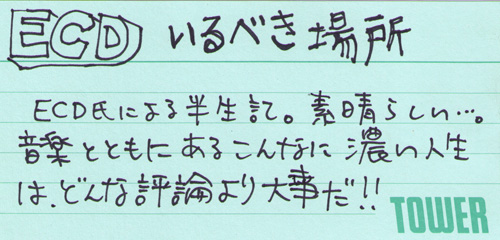 ECD いるべき場所
ECD氏による半生記。素晴らしい…。
音楽とともにあるこんなに濃い人生
は、どんな評論より大事だ!!
TOWER